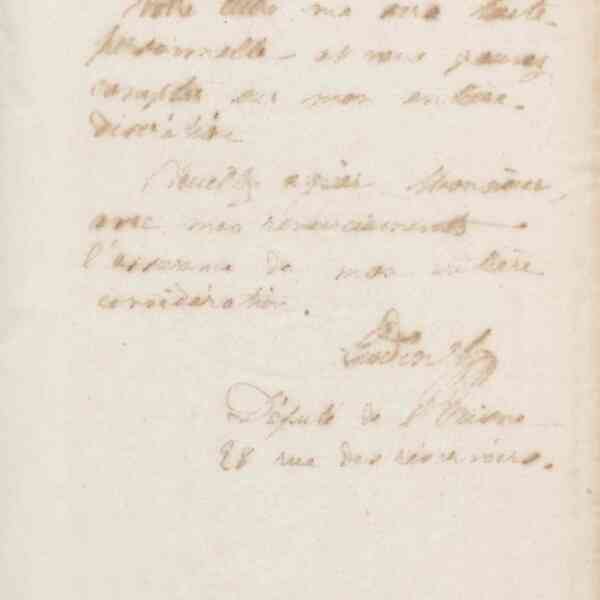 Votre lettre me sera toute
personnelle et vous pouvez
compter sur mon entière
discrétion
Veuillez agréer Monsieur,
avec mes remerciements
l'assurance de mon entière
considération.
Godin
Député de l'Aisne
28 rue des réservoirs.